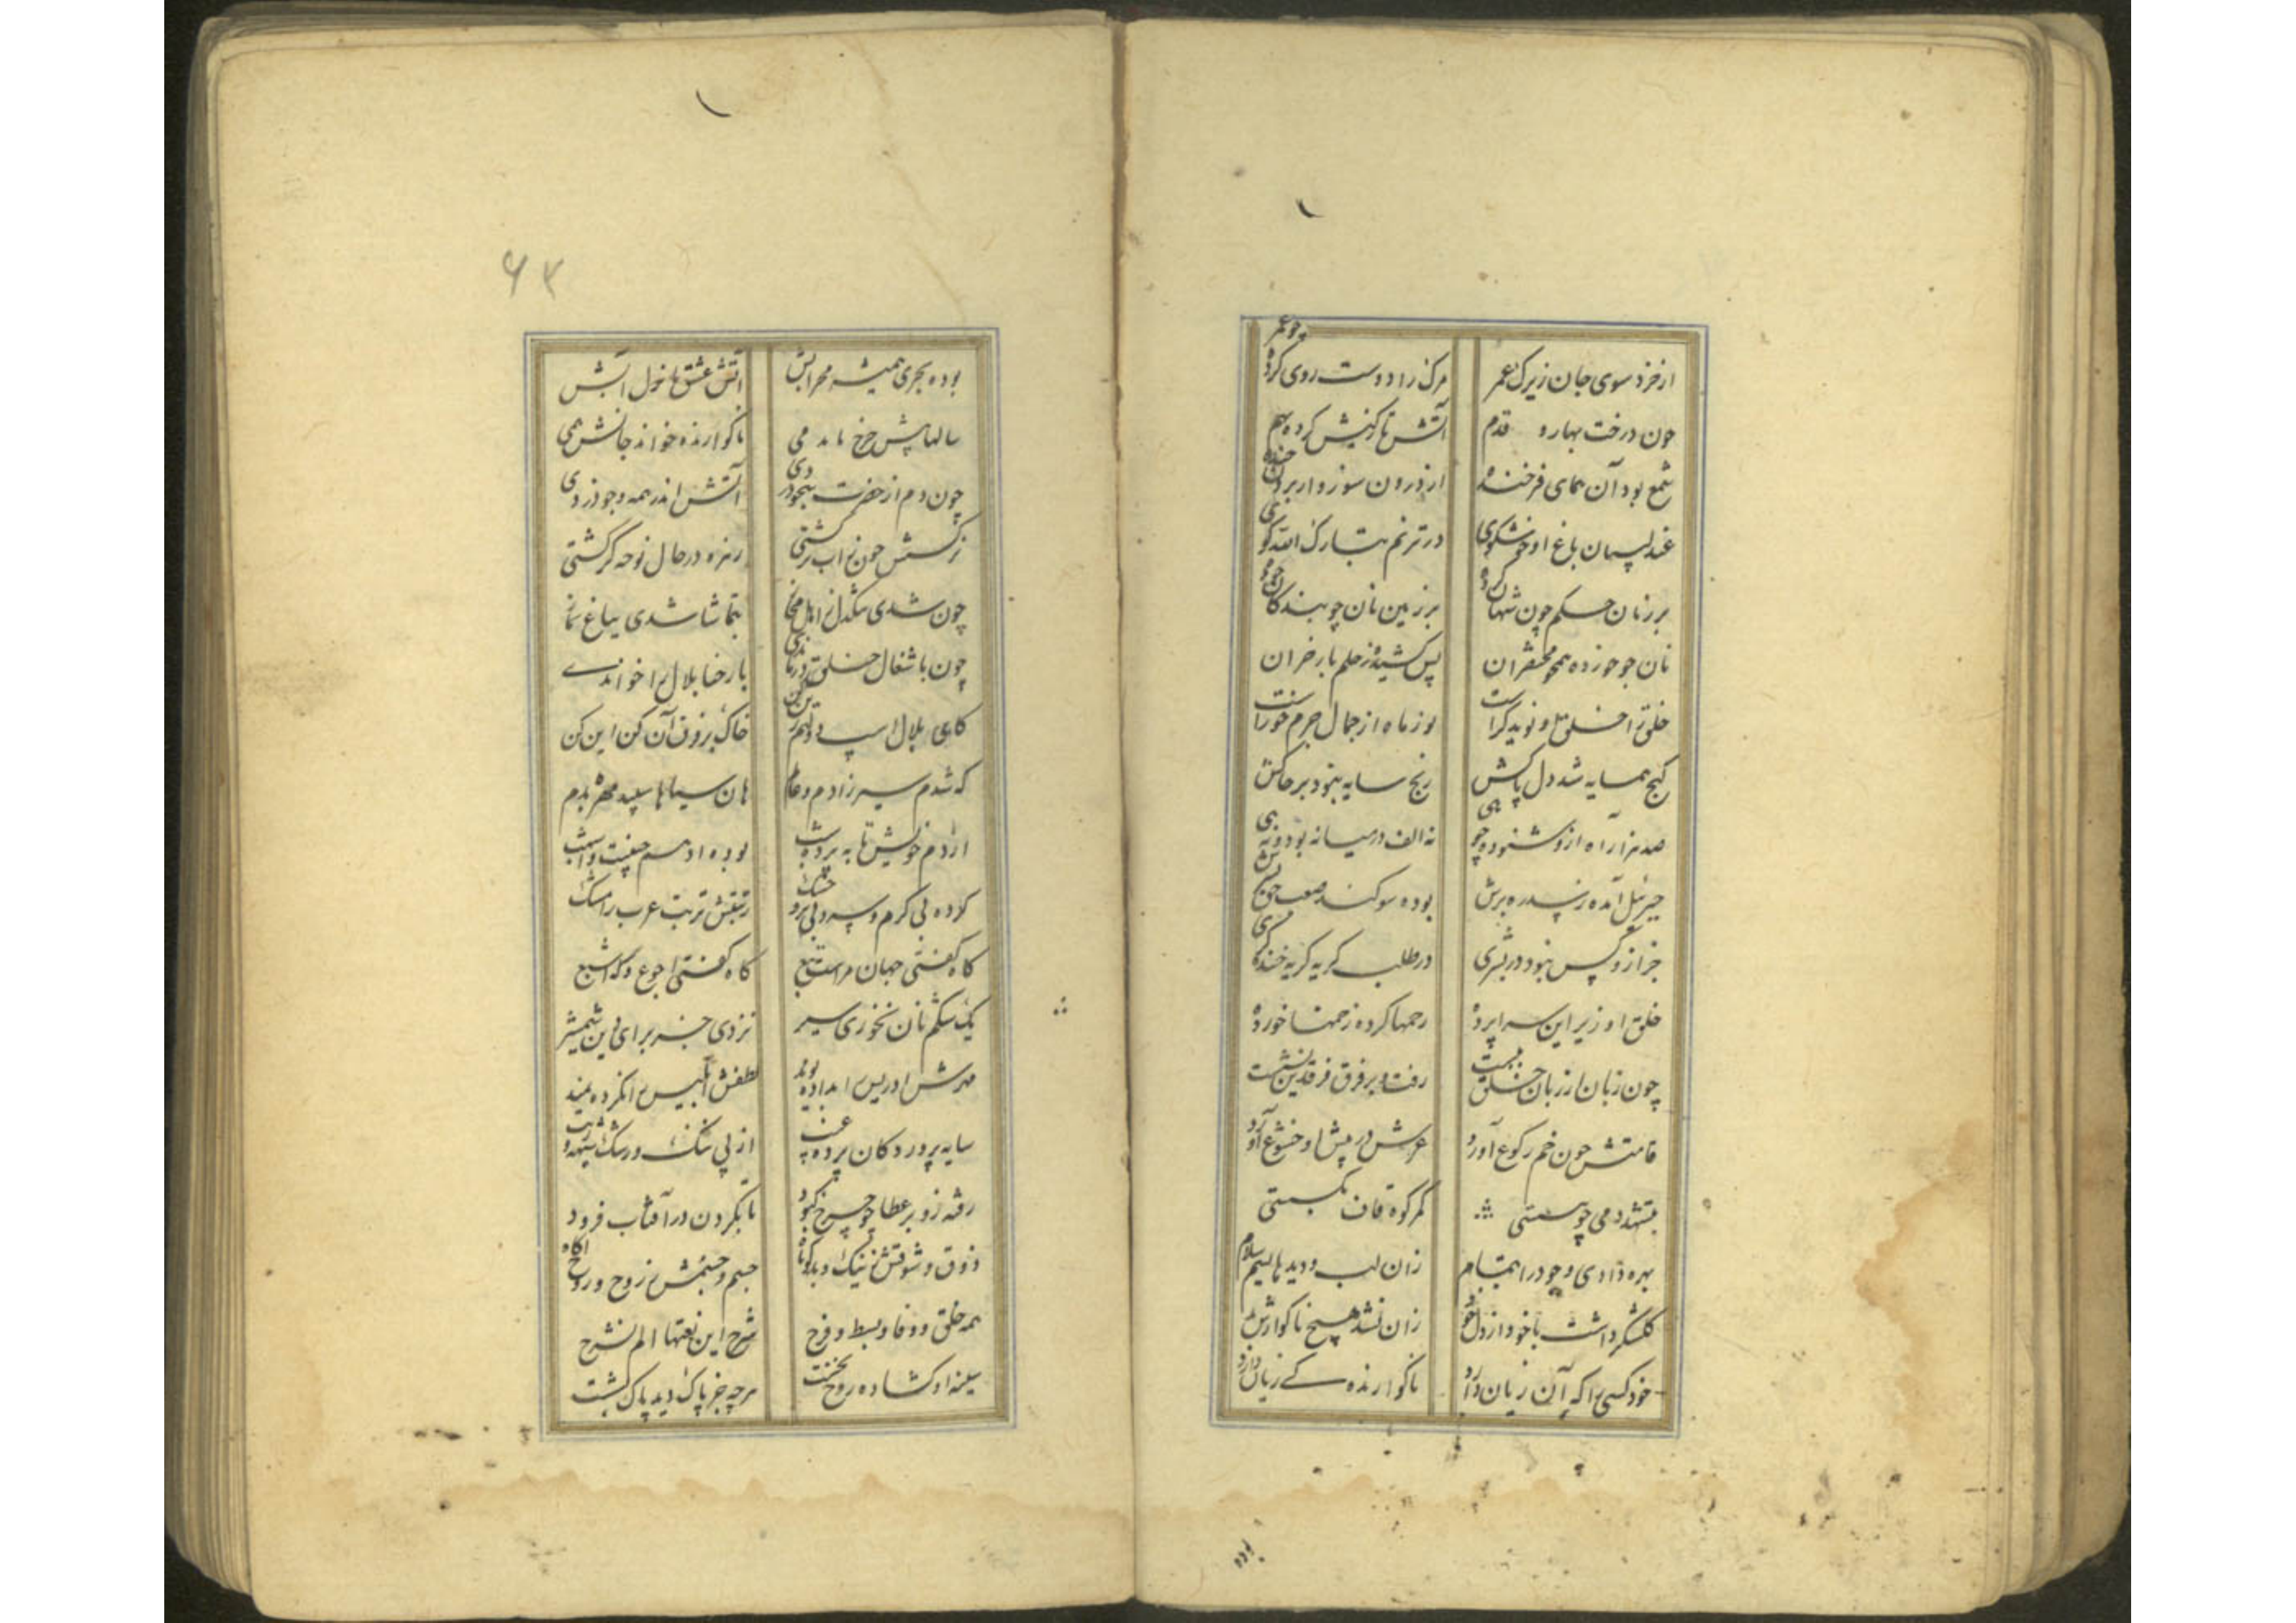 از خرد سوی جان زیرک عمر مرگ را دوست روی کرده چو عمر
چون درخت بهار و قدم آتش تا کنیش کرده بهم
شمع بود آن همای فرخنده از درون سوز و از برون خنده
عندلیبان باغ او خوشگوی در ترنم تبارک الله گوی
بر زنان حکم چون شهان کرده بر زمین نان چو بندگان خورده
نان جو خورده همچو مختصران پس کشیده ز حلم بار خران
خلق را خلق او نوید گرست نور ماه از جمال جرم خورست
گنج همسایه شد دل پاکش رنج سایه نبود بر خاکش
صد هزار آه ازو شنوده چو هی نه الف در میانه بوده نه هی
جبرئیل آمده ز سدره برش بوده سوگند صعب جان و سرش
جز ازو کس نبود در بشری در طلب گریه گریه خنده گری
خلق او زیر این سراپرده رحمها کرده زخمها خورده
چون زبان از زبان خلق ببست رفت و بر فرق فرقدین نشست
قامتش چون خم رکوع آورد عرش در پیش او خشوع آورد
بتشهد دمی چو بنشستی کمر کوه قاف بگسستی
بهره دادی وجود را بتمام زان لب و دیدها سلیم سلام
گلشکر داشت با خود از دل خود زان نشد هیچ ناگوارش بد
خود کسی را که آن زیان دارد ناگوارنده کی زیان دارد
بوده
۶۳
بوده بحری همیشه محرابش آتش عشق ها خول آبش
سالها پیش چرخ ماند می ناگوارنده خواند جانش همی
چون دم از حضرت بیخود زدی آتش اندر همه وجود زدی
نرگسش چون ز آب تر گشتی زهره در حال نوحه گر گشتی
چون شدی تنگدل ز اهل مجاز بتماشا شدی بباغ نماز
چون باشغال خلق درماندی بارحنا بلال را خواندی
کای بلال اسب دولتم زین کن خاک بر فرق آن کن این کن
که شدم سیر ز آدم و عالم هان سیاها سپید مهره بدم
از دم خویش تا به پرده شب بوده او جسم جفت و اسب
کرده بی گرم و سرد و بی تر و خشک رتبتش تربت عرب را مشک
گاه گفتی جهان مراست تبع گاه گفتی اجوع و گه اشبع
یک شکم نان نخوری سیر نزدی جز برای دین شمشیر
مهرش ادریس را بداده نوید لطفش ابلیس را نکرده نمید
سایه پروردگان پرده غیب از پی ننگ و شک و شبهت و ریب
رفته زو بر عطا چو چرخ کبود تا بگردن در آفتاب فرود
ذوق و شوقش ز نیک و بد کوتاه جسم و جشمش ز روح و روح آگاه
همه خلق و وفا و بسط و فرح شرح این نعتها الم نشرح
سینه او گشاده روح نخست هرچه جز پاک دید پاک بشست